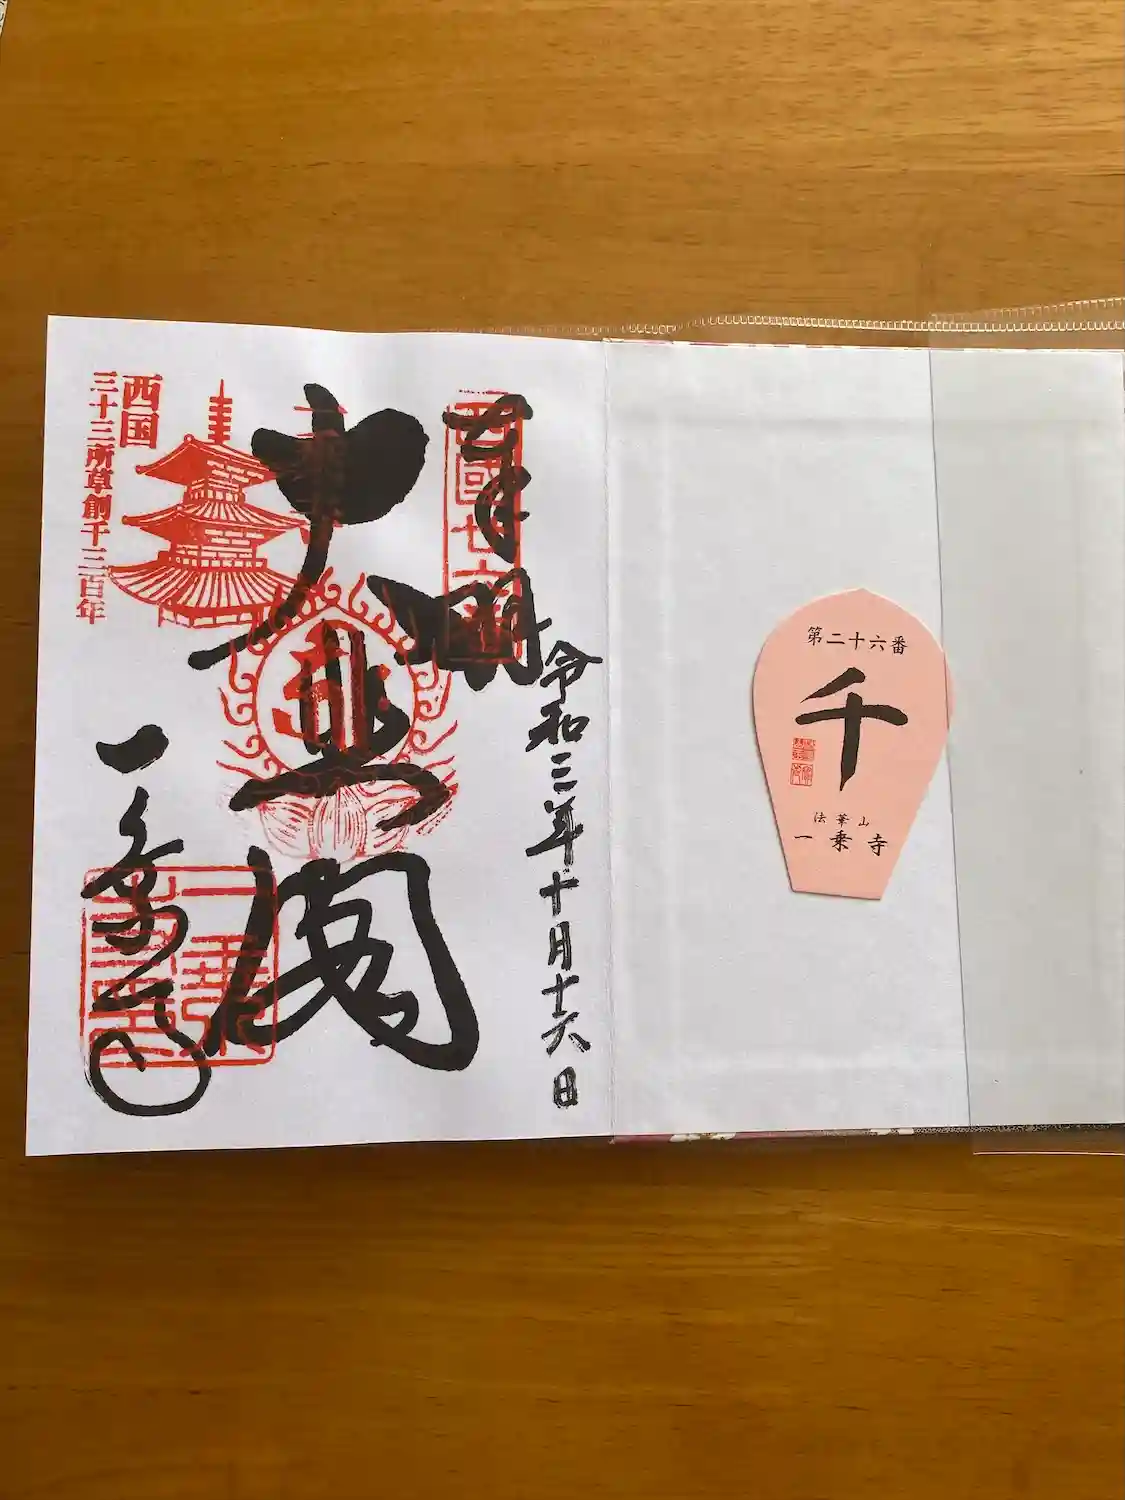 西国
三十三所草創千三百年
西國廿六番
奉拝
大悲閣
一乗寺
令和三年十月十六日
第二十六番
千
法華山
一乗寺